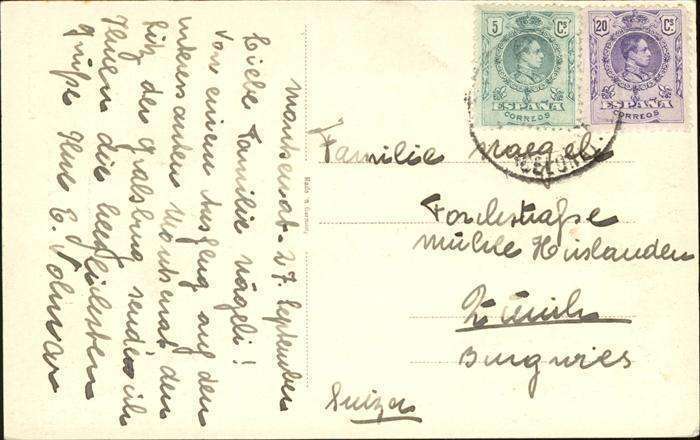 Montserrat - 27. September
Liebe Familie Nägeli!
Von einem Ausflug auf den
interessanten Montserrat den
Sitz der Gralsburg sende ich
Ihnen die herzlichsten
Grüße Ihre E. Volmar
Made in Germany
5 Cs
ESPAÑA
CORREOS
20 Cs
ESPAÑA
CORREOS
Familie Naegeli
Forchstraße
Mühle Hirslanden
Zürich
Burgwies
Suiza